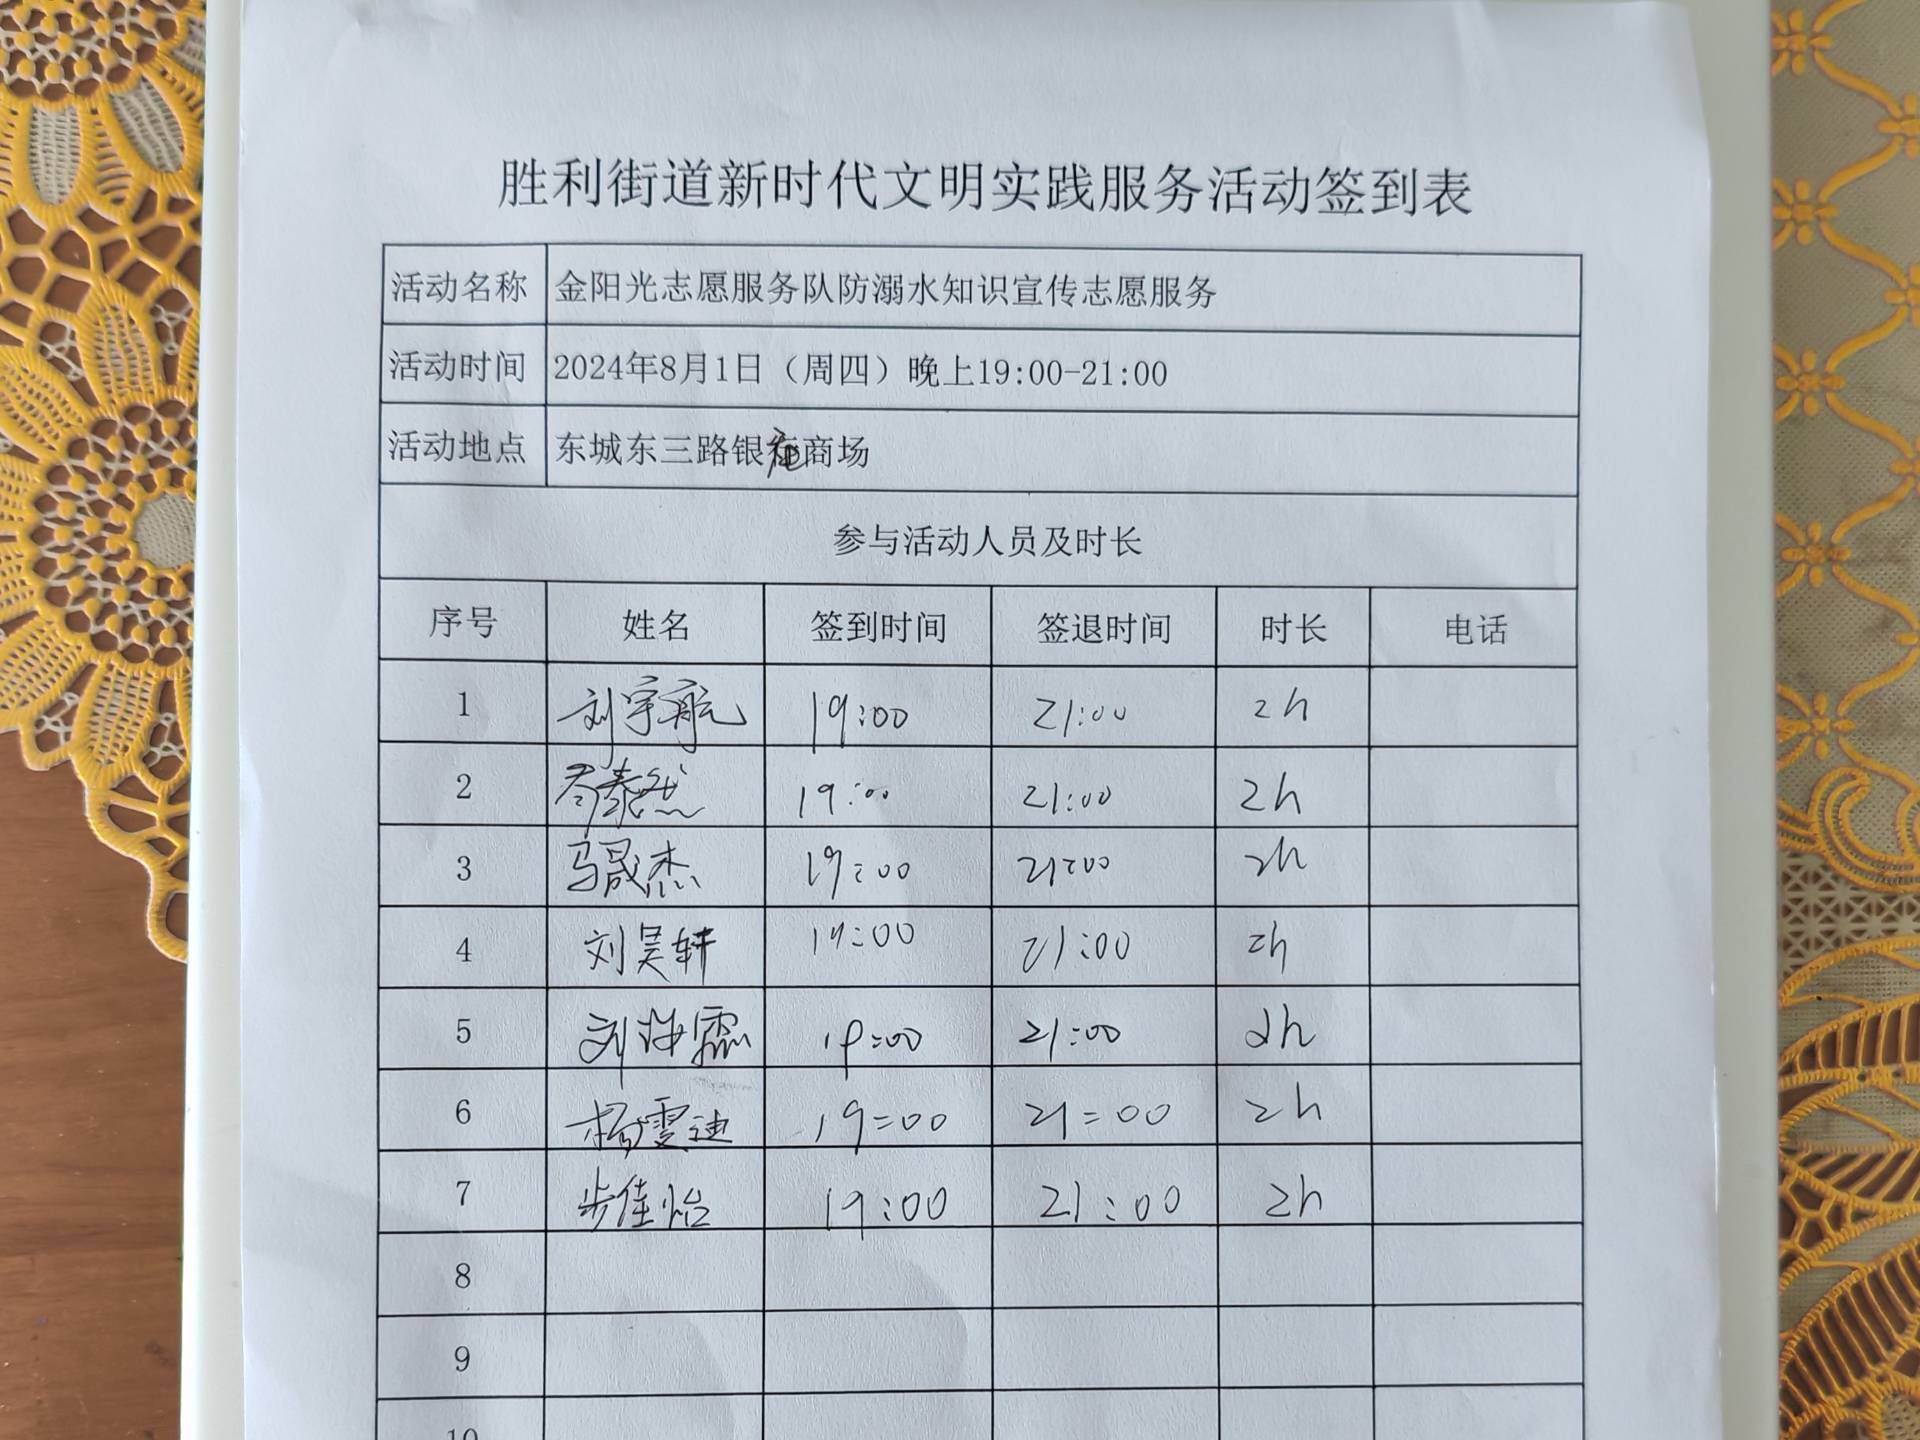 胜利街道新时代文明实践服务活动签到表
活动名称 金阳光志愿服务队防溺水知识宣传志愿服务
活动时间 2024年8月1日（周四）晚上19:00-21:00
活动地点 东城东三路银座商场
参与活动人员及时长
序号 姓名 签到时间 签退时间 时长 电话
1 刘宇航 19:00 21:00 2h
2 岑泰然 19:00 21:00 2h
3 马晟杰 19:00 21:00 2h
4 刘昊轩 19:00 21:00 2h
5 刘 霖 19:00 21:00 2h
6 杨雯迪 19:00 21:00 2h
7 步佳怡 19:00 21:00 2h
8
9
10